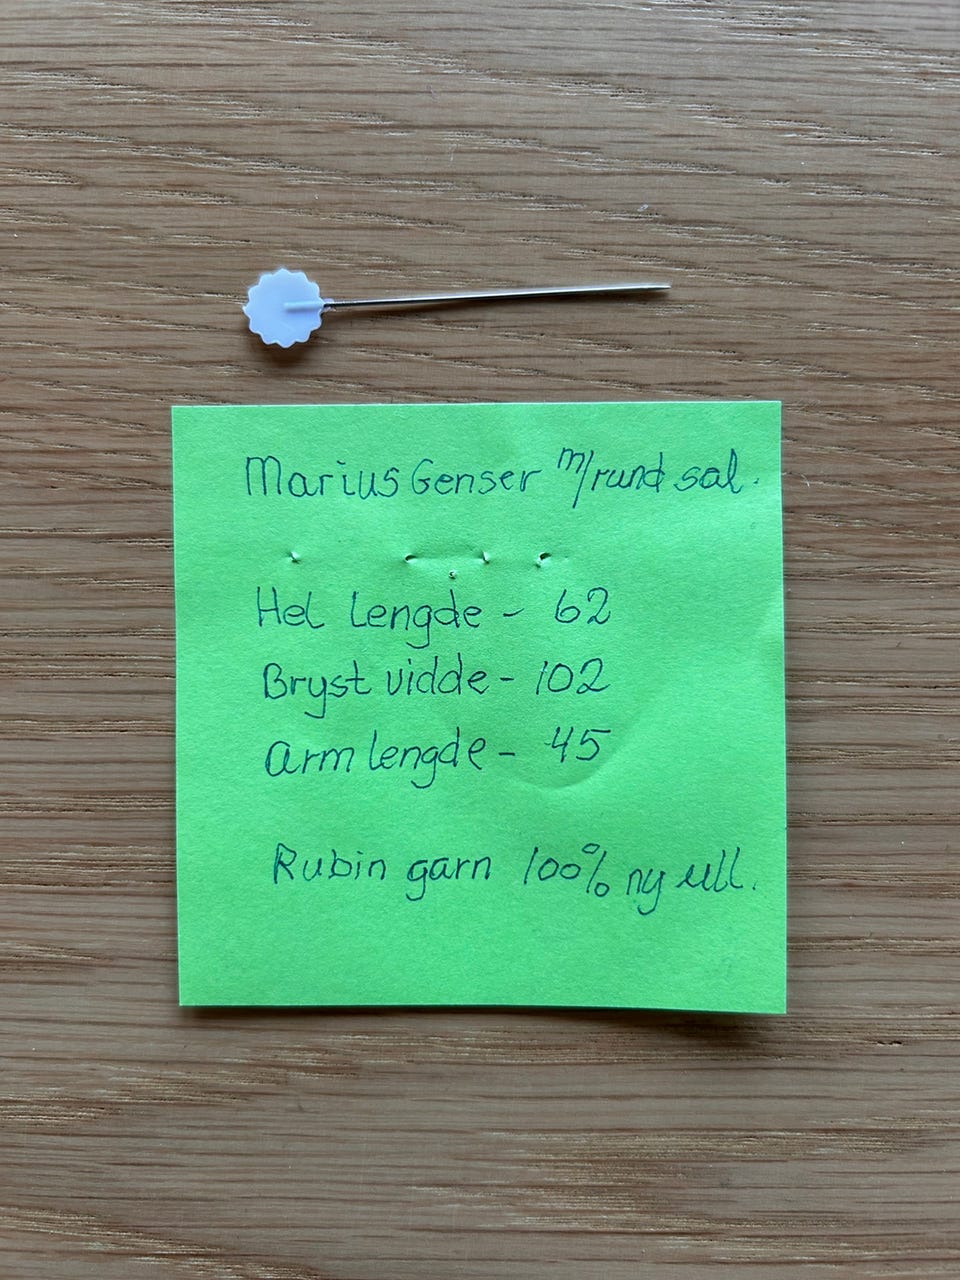 Marius Genser m/rund sal.
Hel lengde - 62
Bryst vidde - 102
Arm lengde - 45
Rubin garn 100% ny ull.